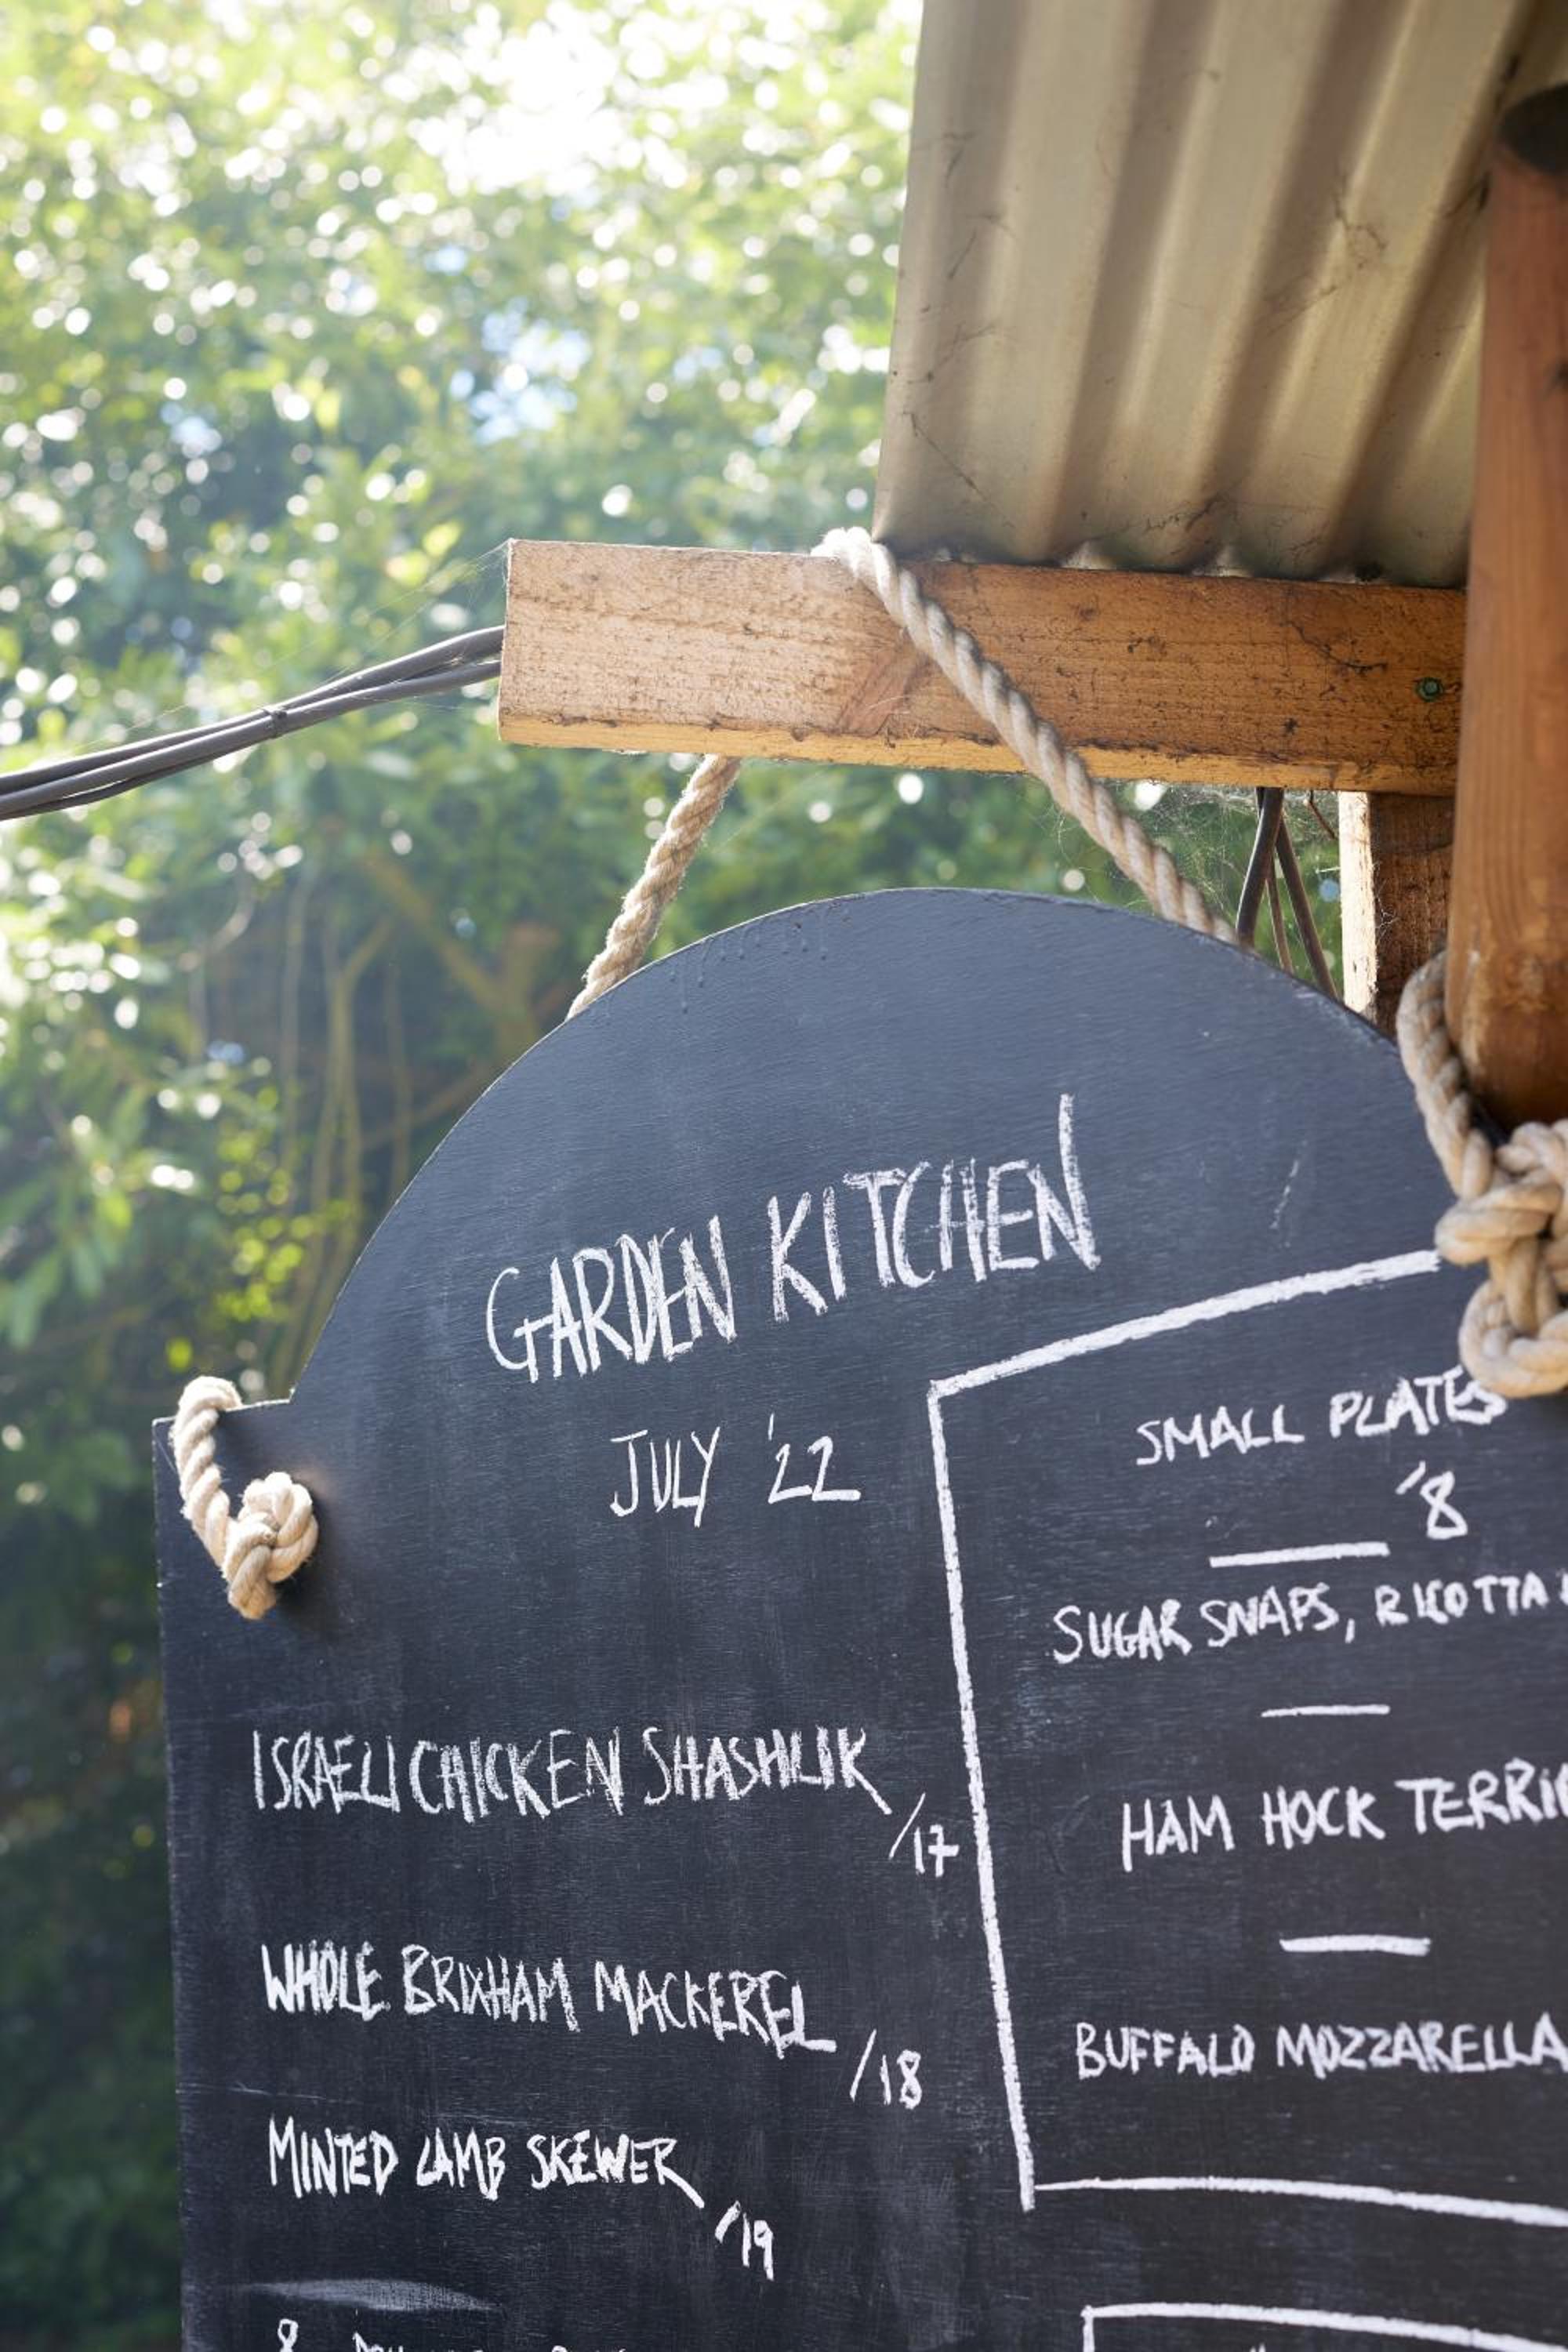 GARDEN KITCHEN
JULY '22
ISRAELI CHICKEN SHASHLIK
/17
WHOLE BRIXHAM MACKEREL
/18
MINTED LAMB SKEWER
/19
8
SMALL PLATES
'8
SUGAR SNAPS, RICOTTA
HAM HOCK
BUFFALO MOZZARELLA